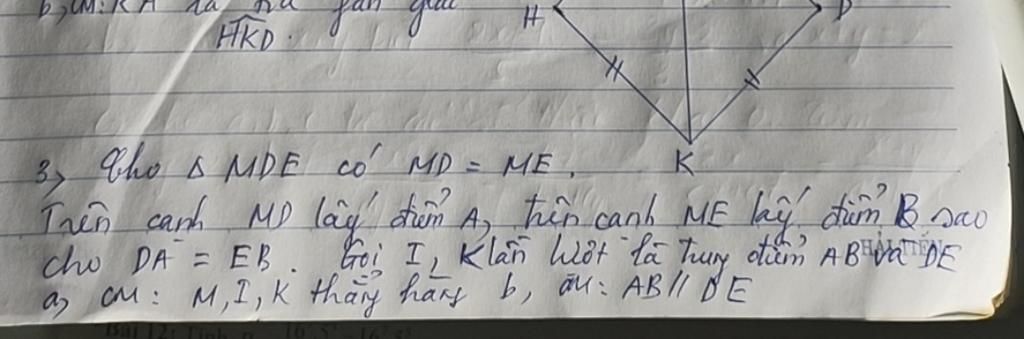 b, CM: KH là tia phân giác
HKD.
H
D
K
3, Cho Δ MDE có MD = ME.
Trên cạnh MD lấy điểm A, trên cạnh ME lấy điểm B sao
cho DA = EB. Gọi I, K lần lượt là trung điểm AB và DE
a, CM: M, I, K thẳng hàng b, CM: AB // DE